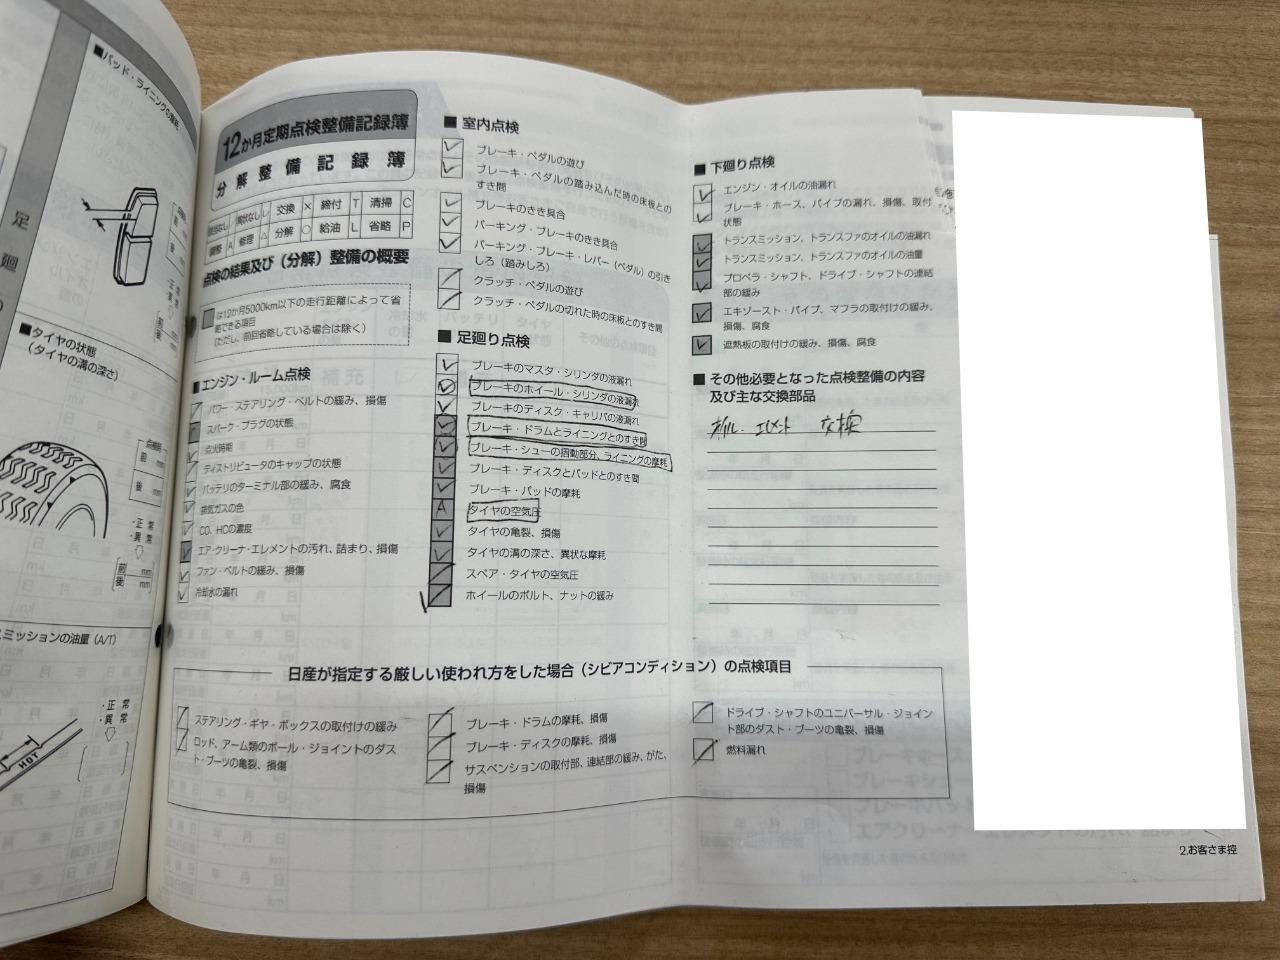 ■パッド・ライニングの摩耗
足
廻
■タイヤの状態
(タイヤの溝の深さ)
前 mm
後 mm
・正常
・異常
前 mm
後 mm
ミッションの油量(A/T)
・正常
・異常
HOT
12か月定期点検整備記録簿
分解整備記録簿
該当なし / 異状なし レ 交換 × 締付 T 清掃 C
調整 A 修理 △ 分解 ○ 給油 L 省略 P
点検の結果及び(分解)整備の概要
は12か月5000km以下の走行距離によって省
略できる項目
(ただし、前回省略している場合は除く)
■エンジン・ルーム点検
パワー・ステアリング・ベルトの緩み、損傷
スパーク・プラグの状態
点火時期
ディストリビュータのキャップの状態
バッテリのターミナル部の緩み、腐食
排気ガスの色
CO、HCの濃度
エア・クリーナ・エレメントの汚れ、詰まり、損傷
ファン・ベルトの緩み、損傷
冷却水の漏れ
■室内点検
ブレーキ・ペダルの遊び
ブレーキ・ペダルの踏み込んだ時の床板との
すき間
ブレーキのきき具合
パーキング・ブレーキのきき具合
パーキング・ブレーキ・レバー(ペダル)の引き
しろ(踏みしろ)
クラッチ・ペダルの遊び
クラッチ・ペダルの切れた時の床板とのすき間
■足廻り点検
ブレーキのマスタ・シリンダの液漏れ
ブレーキのホイール・シリンダの液漏れ
ブレーキのディスク・キャリパの液漏れ
ブレーキ・ドラムとライニングとのすき間
ブレーキ・シューの摺動部分、ライニングの摩耗
ブレーキ・ディスクとパッドとのすき間
ブレーキ・パッドの摩耗
A タイヤの空気圧
タイヤの亀裂、損傷
タイヤの溝の深さ、異状な摩耗
スペア・タイヤの空気圧
ホイールのボルト、ナットの緩み
■下廻り点検
エンジン・オイルの油漏れ
ブレーキ・ホース、パイプの漏れ、損傷、取付
状態
トランスミッション、トランスファのオイルの油漏れ
トランスミッション、トランスファのオイルの油量
プロペラ・シャフト、ドライブ・シャフトの連結
部の緩み
エキゾースト・パイプ、マフラの取付けの緩み、
損傷、腐食
遮熱板の取付けの緩み、損傷、腐食
■その他必要となった点検整備の内容
及び主な交換部品
オイル・エレメント 交換
日産が指定する厳しい使われ方をした場合(シビアコンディション)の点検項目
ステアリング・ギヤ・ボックスの取付けの緩み
ロッド、アーム類のボール・ジョイントのダス
ト・ブーツの亀裂、損傷
ブレーキ・ドラムの摩耗、損傷
ブレーキ・ディスクの摩耗、損傷
サスペンションの取付部、連結部の緩み、がた、
損傷
ドライブ・シャフトのユニバーサル・ジョイン
ト部のダスト・ブーツの亀裂、損傷
燃料漏れ
2.お客さま控